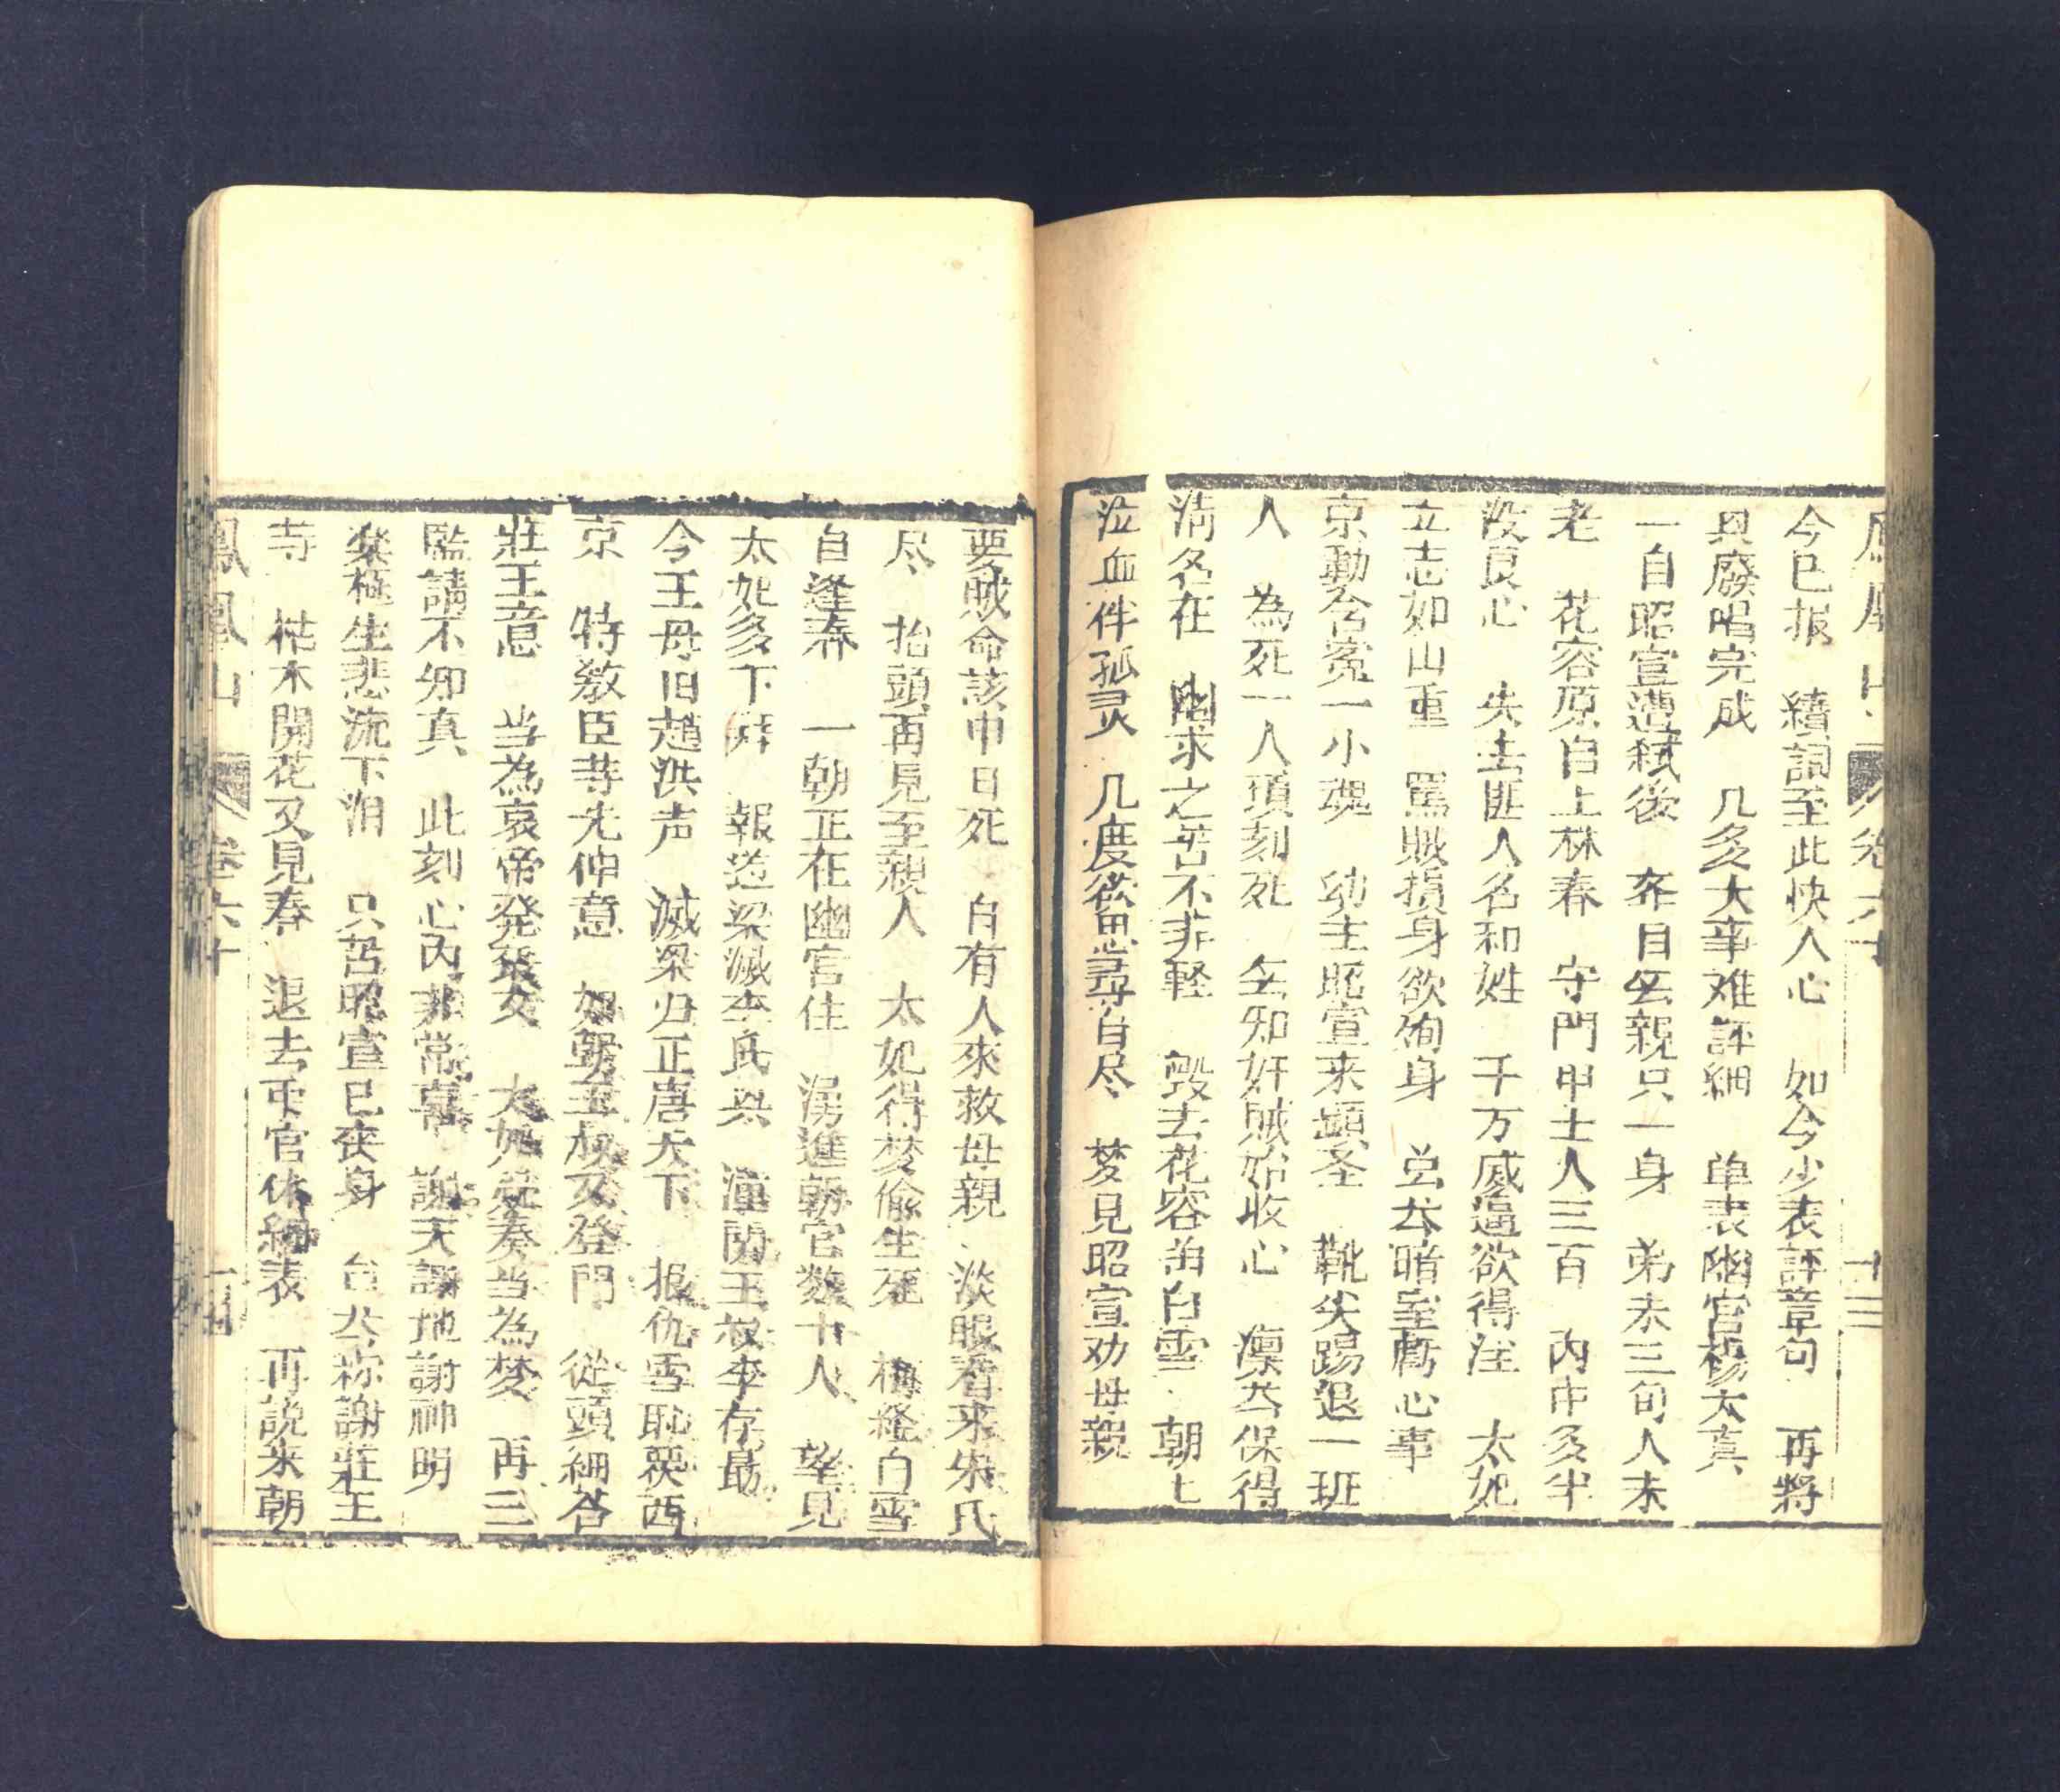 鳳凰山　卷六十　十三
今已报　續詞至此快人心　如今少表評章句　再將
具廢唱完成　几多大事难評細　单表幽宫楊太真
一自昭宣遭弑後　夲目無親只一身　弟未三旬人未
老　花容原自上林春　守門甲士人三百　内中多半
没良心　失去匪人名和姓　千万威逼欲得注　太妃
立志如山重　罵贼損身欲殉身　暗室虧心事
京動含寃一小魂　幼主昭宣来顕圣　靴尖踢退一班
人　為死一人頃刻死　無知奸贼始收心　凛公保得
清名在　幽求之苦不非軽　毁去花容白雪　朝七
泣血伴孤灵　几度欲思尋自尽　梦見昭宣劝母親
要贼命該申日死　自有人來救母親　淡眼看來朱氏
尽　抬頭再見至親人　太妃得梦偷生死　梅経白雪
自逢春　一朝正在幽官住　湧進朝官数十人　望見
太妃多下拜　報道梁滅李氏興　潼関王叔李存勗
今王母旧趙洪声　滅梁归正唐天下　报仇雪恥哭西
京　特教臣等先伸意　如朝王叔又登門　從頭細答
莊王意　当為哀帝発衰文　太妃奏当為梦　再三
監讀不知真　此刻心内非常喜　謝天謝地謝神明
楽極生悲流下泪　只苦昭宣已丧身　台公称謝莊王
寺　枯木開花又見春　退去千官休細表　再説来朝
鳳凰山　卷六十　十四